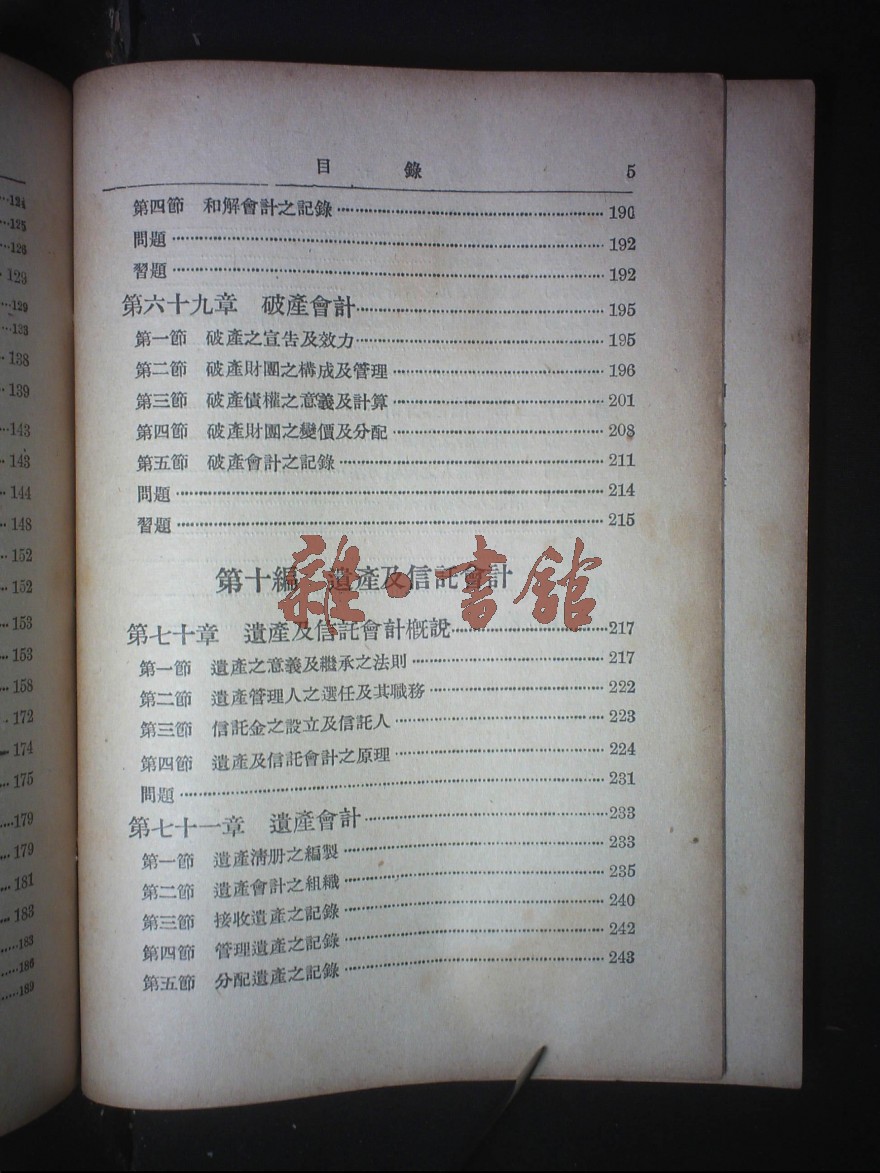 124
125
126
129
129
133
138
139
143
143
144
148
152
152
153
153
158
172
174
175
179
179
181
183
183
186
189
目 錄 5
第四節 和解會計之記錄 190
問題 192
習題 192
第六十九章 破產會計 195
第一節 破產之宣告及效力 195
第二節 破產財團之構成及管理 196
第三節 破產債權之意義及計算 201
第四節 破產財團之變價及分配 208
第五節 破產會計之記錄 211
問題 214
習題 215
第十編 遺產及信託會計
雜·書館
第七十章 遺產及信託會計概說 217
第一節 遺產之意義及繼承之法則 217
第二節 遺產管理人之選任及其職務 222
第三節 信託金之設立及信託人 223
第四節 遺產及信託會計之原理 224
問題 231
第七十一章 遺產會計 233
第一節 遺產清册之編製 233
第二節 遺產會計之組織 235
第三節 接收遺產之記錄 240
第四節 管理遺產之記錄 242
第五節 分配遺產之記錄 243